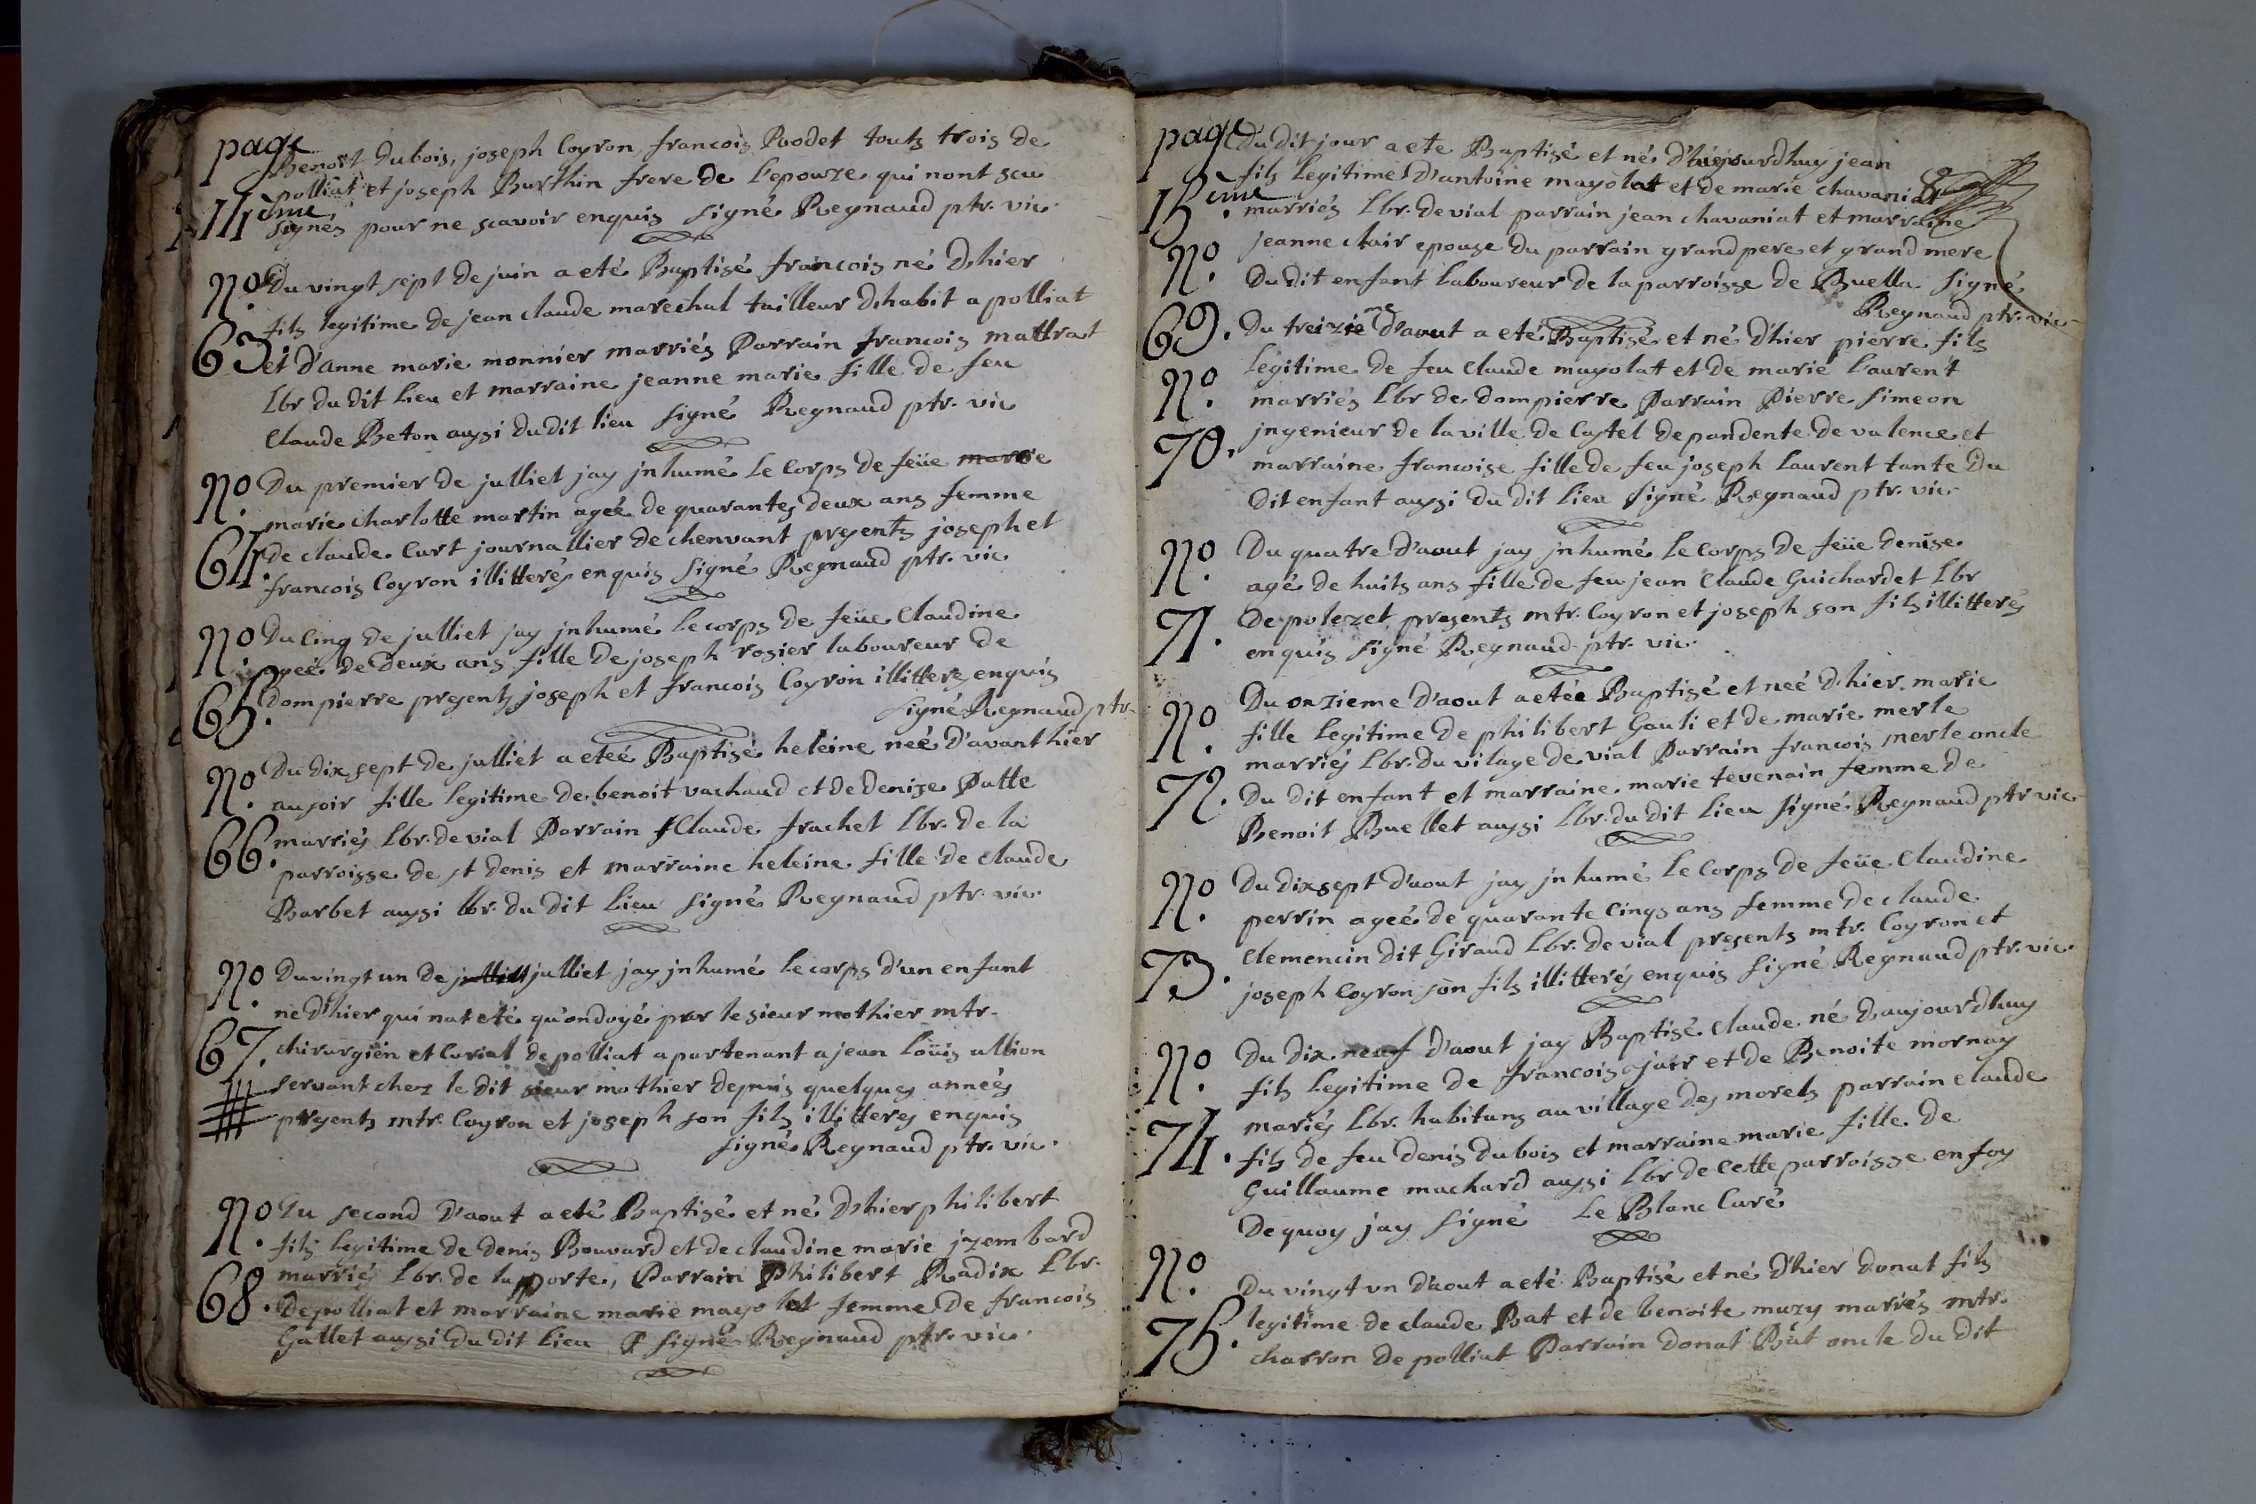 page
14ème
Benoit Dubois, joseph Coyron, francois Rodet touts trois de
polliat et joseph Burthin frere de L'epouze qui nont scu
signés pour ne scavoir enquis signé Regnaud ptr. vic.
No. 63
Du vingt sept de juin a eté Baptisé francois né dhier
fils legitime de jean claude marechal tailleur dhabit a polliat
et d'anne marie monnier marriés Parrain francois mattrat
Lbr du dit Lieu et marraine jeanne marie fille de feu
Claude Beton aussi du dit lieu signé Regnaud ptr. vic
No. 64.
Du premier de julliet jay jnhumé Le Corps de feüe marie
marie charlotte martin ageé de quarantes deux ans femme
de claude Curt journallier de chenvant presents joseph et
francois Coyron illitterés enquis signé Regnaud ptr. vic
No. 65.
Du Cinq de julliet jay jnhumé Le corps de feüe Claudine
ageé de deux ans fille de joseph rosier laboureur de
dompierre presents joseph et francois Coyron illitteres enquis
signé Regnaud ptr.
No. 66.
Du dix sept de julliet a eteé Baptisé heleine neé d'avant hier
au soir fille legitime de benoit vachaud et de denise Patte
marriés Lbr. de vial Parrain Claude frachet Lbr. de la
parroisse de st denis et marraine heleine fille de claude
Barbet aussi lbr. du dit Lieu signé Regnaud ptr. vic.
No. 67.
Du vingt un de julliet julliet jay jnhumé Le corps d'un enfant
né d'hier qui nat eté qu'ondoyé par le sieur mothier mtr.
chirurgien et Curial de polliat apartenant a jean Loüis allion
servant chez le dit sieur mothier depuis quelques années
presents mtr. Coyron et joseph son fils illitteres enquis
signé Regnaud ptr. vic.
No. 68.
Du second d'aout a eté Baptisé et né dhier philibert
fils legitime de denis Bouvard et de claudine marie jzembard
marriés Lbr. de la porte, Parrain Philibert Radix Lbr.
de polliat et marraine marie mayolat femme de francois
Gallet aussi du dit Lieu signé Regnaud ptr. vic.
page
15ème.
No. 69.
Du dit jour a ete Baptisé et né d'aujourdhuy jean
fils legitime d'antoine mayolat et de marie chavaniat
marriés Lbr. de vial parrain jean chavaniat et marraine
jeanne clair epouse du parrain grand pere et grand mere
du dit enfant Laboureur de la parroisse de Buella signé
Regnaud ptr. vic
No. 70.
Du treizieme d'aout a eté Baptisé et né d'hier pierre fils
legitime de feu Claude mayolat et de marie Laurent
marriés Lbr de dompierre Parrain Pierre simeon
jngenieur de la ville de Castel depandente de valence et
marraine francoise fille de feu joseph Laurent tante du
dit enfant aussi du dit Lieu signé Regnaud ptr. vic
No. 71.
Du quatre d'aout jay jnhumé Le Corps de feüe denise
agé de huits ans fille de feu jean Claude Guichardet Lbr
de polezet presents mtr. Coyron et joseph son fils illitterés
enquis signé Regnaud ptr. vic.
No. 72.
Du onzieme d'aout a etée Baptisé et neé dhier marie
fille legitime de philibert Gauti et de marie merle
marriés Lbr. du vilage de vial Parrain francois merle oncle
du dit enfant et marraine marie tevenain femme de
Benoit Buellet aussi Lbr. du dit Lieu signé Regnaud ptr vic
No. 73.
Du dixsept d'aout jay jnhumé Le Corps de feüe Claudine
perrin ageé de quarante Cinqs ans femme de claude
Clemencin dit Giraud Lbr. de vial presents mtr. Coyron et
joseph Coyron son fils illitterés enquis signé Regnaud ptr. vic.
No. 74.
Du dix neuf d'aout jay Baptisé Claude né d'aujourdhuy
fils Legitime de francois ajair et de Benoite mornay
mariés Lbr. habitans au village des morels parrain claude
fils de feu denis dubois et marraine marie fille de
Guillaume machard aussi Lbr de Cette parroisse en foy
de quoy jay signé Le Blanc Curé
No. 75.
Du vingt vn d'aout a eté Baptisé et né d'hier donat fils
legitime de claude Bat et de benoite muzy mariés mtr.
charron de polliat Parrain donat Bat oncle du dit